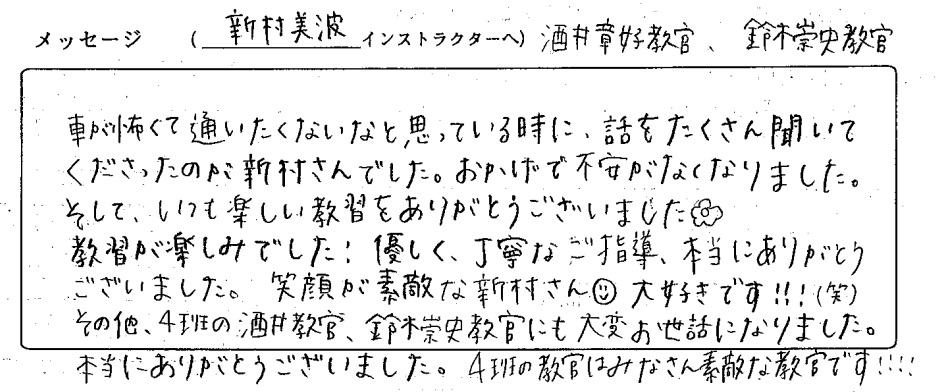 メッセージ （新村美波インストラクターへ）酒井章好教官、鈴木崇史教官
車が怖くて通いたくないなと思っている時に、話をたくさん聞いて
くださったのが新村さんでした。おかげで不安がなくなりました。
そして、いつも楽しい教習をありがとうございました
教習が楽しみでした！優しく、丁寧なご指導、本当にありがとう
ございました。笑顔が素敵な新村さん☺大好きです!!!（笑）
その他、4班の酒井教官、鈴木崇史教官にも大変お世話になりました。
本当にありがとうございました。4班の教官はみなさん素敵な教官です!!!!